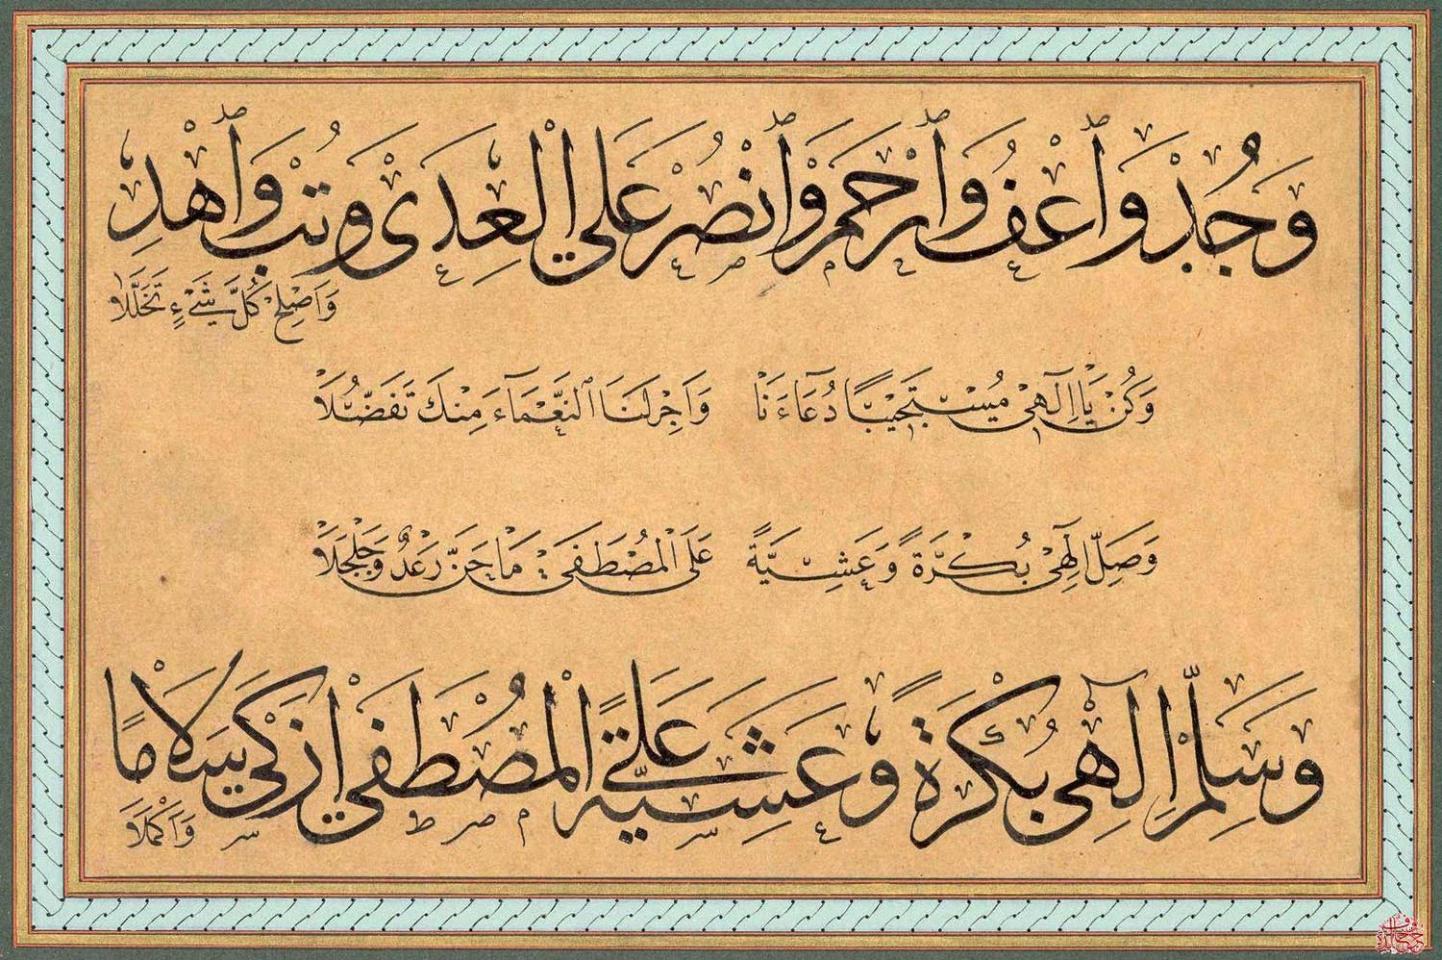 وَجُدْ وَٱعْفُ وَٱرْحَمْ وَٱنْصُرْ عَلَى الْعِدَىْ وَتُبْ وَٱهْدِ
وَاَصْلِحْ كُلَّ شَيْءٍ تَخَلَّلَا
وَكُنْ يَا اِلٰهِيْ مُسْتَجِيْبًا دُعَاءَنَا وَاَجْزِلْ لَنَا النَّعْمَاءَ مِنْكَ تَفَضُّلَا
وَصَلِّ اِلٰهِيْ بُكْرَةً وَعَشِيَّةً عَلَى الْمُصْطَفَى مَا حَنَّ رَعْدٌ وَجَلْجَلَا
وَسَلِّمْ اِلٰهِيْ بُكْرَةً وَعَشِيَّةً عَلَى الْمُصْطَفَى اَزْكَى سَلَامًا
وَاَكْمَلَا